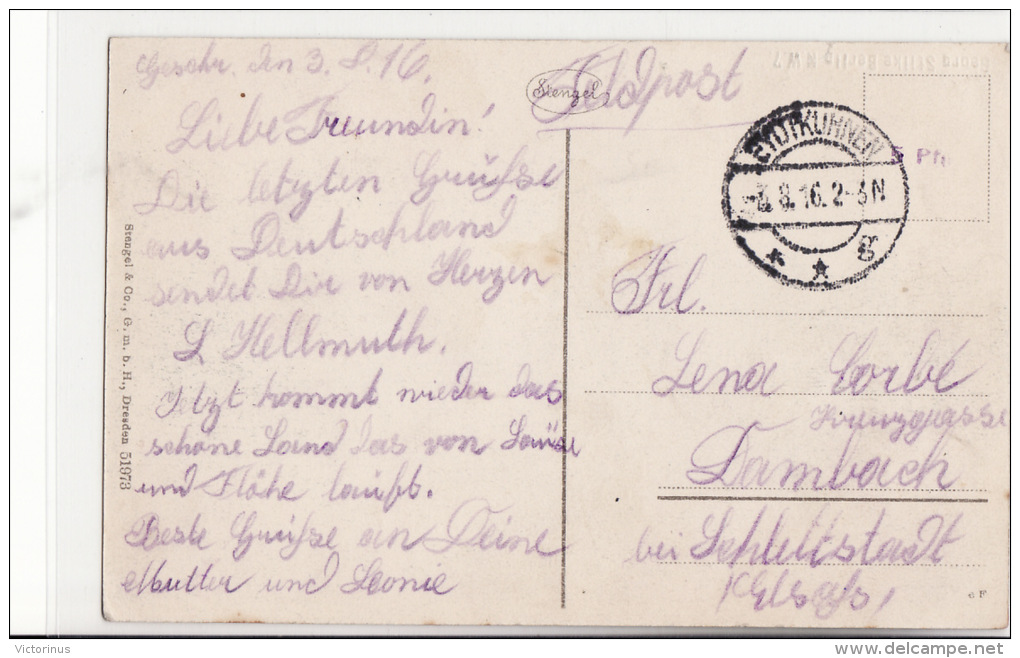 Geschr. den 3. 8. 16.
Liebe Freundin!
Die letzten Grüsse
aus Deutschland
sendet Dir von Herzen
L Hellmuth.
Jetzt kommt wieder das
schöne Land das von Läuse
und Flöhe läuft.
Beste Grüsse an Deine
Mutter und Leonie
Stengel & Co., G. m. b. H., Dresden 51973
Stengel
Feldpost
Georg Stilke Berlin N.W.7
EYDTKUHNEN
8. 16. 2-3N
* * g
5 Pf.
Frl.
Lena Corbé
Kreuzgasse
Dambach
bei Schlettstadt
Elsass,
Victorinus
delcampe.net